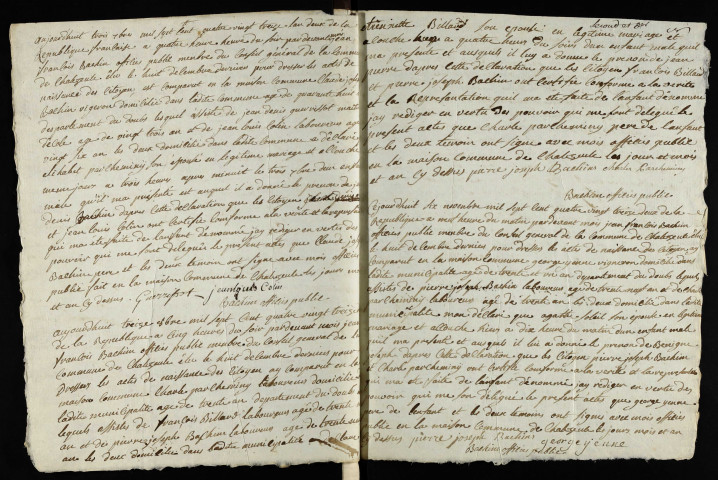 aujourdhuit trois xbre mil sept cent quatre vingt treize lan deux de la
Republique francaise a quatre heure du soir par devant moi jean
francois Bachin officies public membre du Conseil général de la Commune
de Chalezeule élu le huit decembre derniers pour dresser les actes de
naissance des Citoyen est comparut en la maison commune Claude jos
Bachin vigeron domicilié dans ladite Commune age de quarante huit
despartement du doubs lequel assisté de jean denis maitre
décole age de vingt trois an et de jean louis Colin laboureur age
vingt six an les deux domicilie dans ladite commune a déclaré
elisabet parcheminy son epouse en legitime mariage et acouche
meme jour a trois heures apres
male qu'il ma presenté et auquel il a donné le prenom de
denis Bachin dapres cette déclaration que les Citoyens
et jean louis Colin ont Certifié Conforme a la verité et la represen
qui ma ete faite de lanfant dénommé jay rediger en vertu des
pouvoir que me sont delegués le present acte que Claude jos
Bachin pere et les deux temoin ont signe avec moi officies
public fait en la maison Commune de Chalezeule les jours mois
et an Cy dessus jeanlouis Colin
Bachin officies public
aujourdhuit treize xbre mil sept Cent quatre vingt treize
de la Republique a cinq heures du soir par devant moi jean
francois Bachin officies public membre du Conseil general de la
commune de Chalezeule élu le huit decembre derniers pour
dresser les actes de naissance des Citoyen ay Comparut en la
maison Commune Charle parcheminy laboureur domicilie
ladite municipalité age de trente an departement du doubs
lequels assisté de francois Billard laboureur age de trente
an et de pierre joseph Bachin laboureur age de trente
an les deux domicilie dans ladite municipalité
Billard son epouse en legitime mariage et
acouche a quatre heures du soir dun enfant male quil
ma presenté et auquels il luy a donné le prenom de jean
pierre dapres cette déclaration que les Citoyen francois Billard
et pierre joseph Bachin ont Certifié Conforme a la verité
et la Representation quil ma ete faite de lanfant denommé
jay rediger en vertu du pouvoir qui me sont delegué le
present actes que Charle parcheminy pere de lanfant
et les deux temoin ont signe avec mois officies public
en la maison commune de Chalezeule les jours et mois
et an cy dessus pierre joseph Bachin charles Parcheminy
Bachin officies public
mil sept Cent quatre vingt treize deux de la
Republique a neuf heure du matin par devant mois jean francois Bachin
officies public membre du Conseil general de la commune de Chalezeule élu
le huit decembre derniers pour dresser les actes de naissance des citoyen ay
Comparut en la maison Commune george yenne vigneron domicilié dans
ladite municipalité age de trente et un an departement du doubs lequels
assisté de pierre joseph Bachin laboureur age de trente neuf an et de Charle
parcheminy laboureur age de trente an les deux domicilie dans ladite
municipalité mon déclaré que agathe son epouse en legitime
mariage et acouche hiers a dix heure du matin dun enfant male
quil ma presenté et auquels il lui a donné le prenom de Benigne
joseph dapres cette declaration que les Citoyen pierre joseph Bachin
et Charle parcheminy ont certifié Conforme a la verité et la representation
qui ma ete faite de lanfant dénommé jay rediger en vertie des
pouvoir qui mon delegué le present actes que george yenne
pere de lenfant et les deux temoins ont signe avec mois officies
public en la maison Commune de Chalezeule les jours mois et an
dessus pierre joseph Bachin george yenne
Bachin officies public